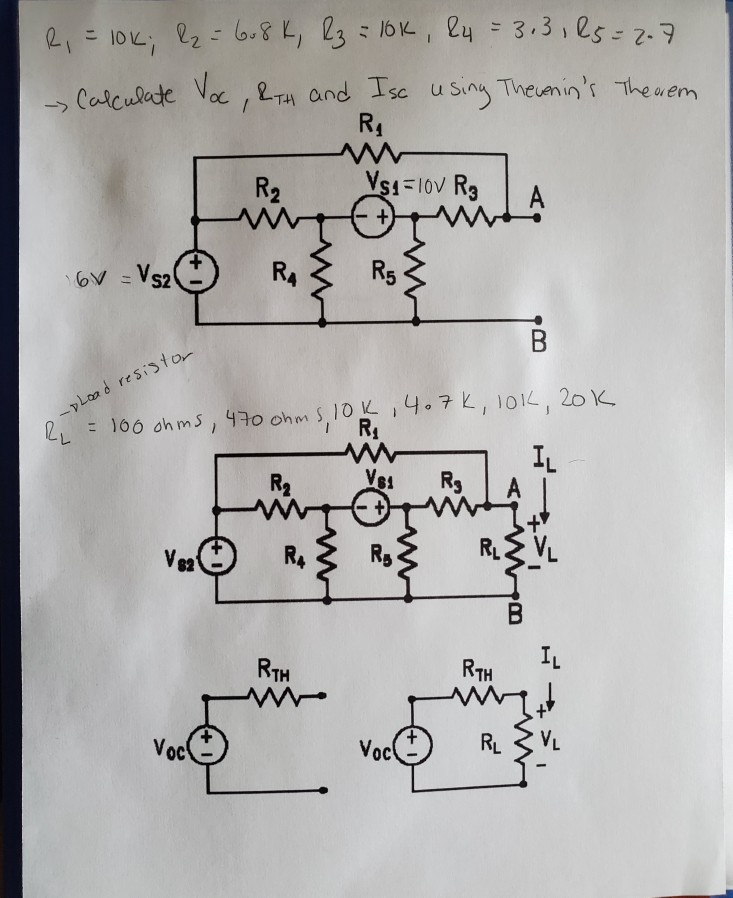 R1 = 10K; R2 = 6.8 K, R3 = 10K, R4 = 3.3, R5 = 2.7
→ Calculate Voc, RTH and Isc using Thevenin's Theorem
R1
R2
VS1=10V R3
A
6V = VS2
R4
R5
B
→Load resistor
RL = 100 ohms, 470 ohms, 10 K, 4.7 K, 10K, 20K
R1
IL
R2
VS1
R3
A
VS2
R4
R5
RL
VL
B
RTH
RTH
IL
VOC
VOC
RL
VL